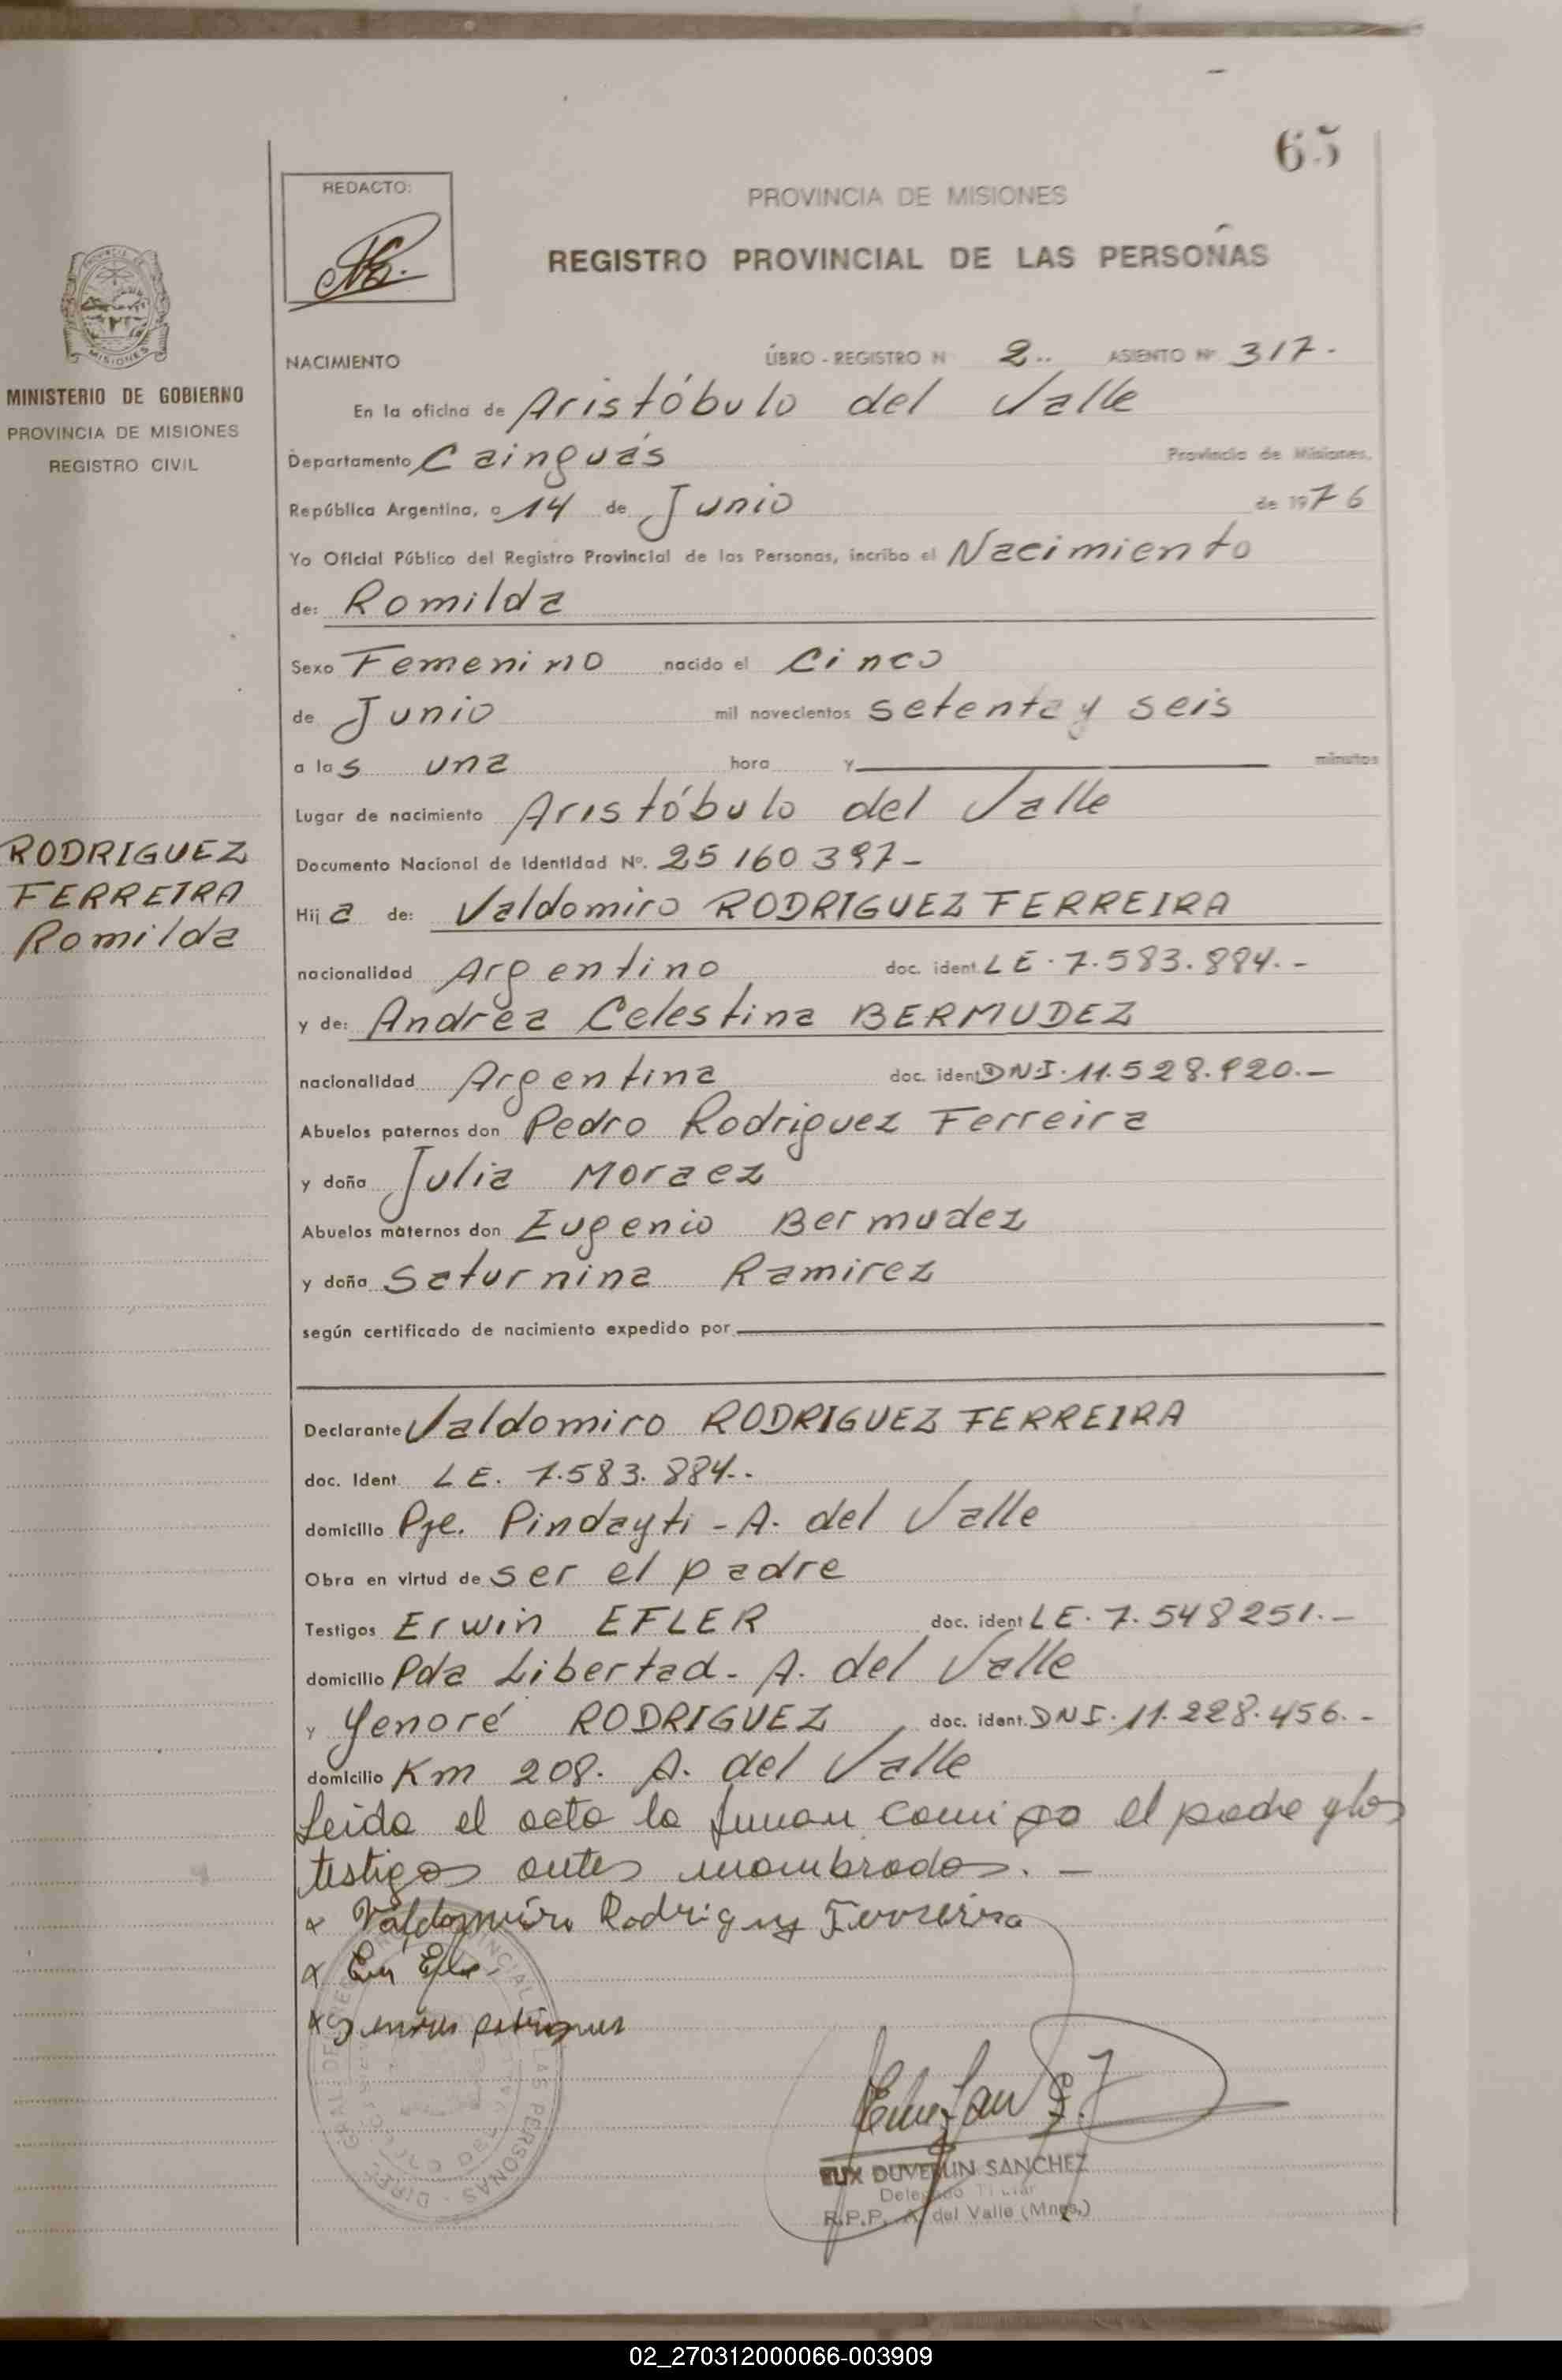 65
REDACTO:
PROVINCIA DE MISIONES
REGISTRO PROVINCIAL DE LAS PERSONAS
MISIONES
MINISTERIO DE GOBIERNO
PROVINCIA DE MISIONES
REGISTRO CIVIL
RODRIGUEZ
FERREIRA
Romilda
NACIMIENTO LIBRO - REGISTRO N 2.. ASIENTO Nº 317.-
En la oficina de Aristóbulo del Valle
Departamento Cainguás Provincia de Misiones.
República Argentina, a 14 de Junio de 1976
Yo Oficial Público del Registro Provincial de las Personas, incribo el Nacimiento
de: Romilda
Sexo Femenino nacido el Cinco
de Junio mil novecientos setenta y seis
a las una hora y minutos
Lugar de nacimiento Aristóbulo del Valle
Documento Nacional de Identidad Nº. 25 160 397-
Hija de: Valdomiro RODRIGUEZ FERREIRA
nacionalidad Argentino doc. ident. LE. 7.583.884.-
y de: Andrea Celestina BERMUDEZ
nacionalidad Argentina doc. ident DNI. 11.528.920.-
Abuelos paternos don Pedro Rodriguez Ferreira
y doña Julia Moraez
Abuelos maternos don Eugenio Bermudez
y doña Saturnina Ramirez
según certificado de nacimiento expedido por
Declarante Valdomiro RODRIGUEZ FERREIRA
doc. Ident. LE. 7.583.884..
domicilio Pje. Pindayti - A. del Valle
Obra en virtud de ser el padre
Testigos Erwin EFLER doc. ident LE. 7.548251.-
domicilio Pda Libertad - A. del Valle
y Yenoré RODRIGUEZ, doc. ident. DNI. 11.228.456.-
domicilio Km 208. A. del Valle
Leida el acta la firman comigo el padre y los
testigos antes nombrados. -
x Valdomiro Rodriguez Ferreira
x Efler
x
ELIX DUVERLIN SANCHEZ
Delegado Titular
R.P.P. A. del Valle (Mnes.)
02_270312000066-003909